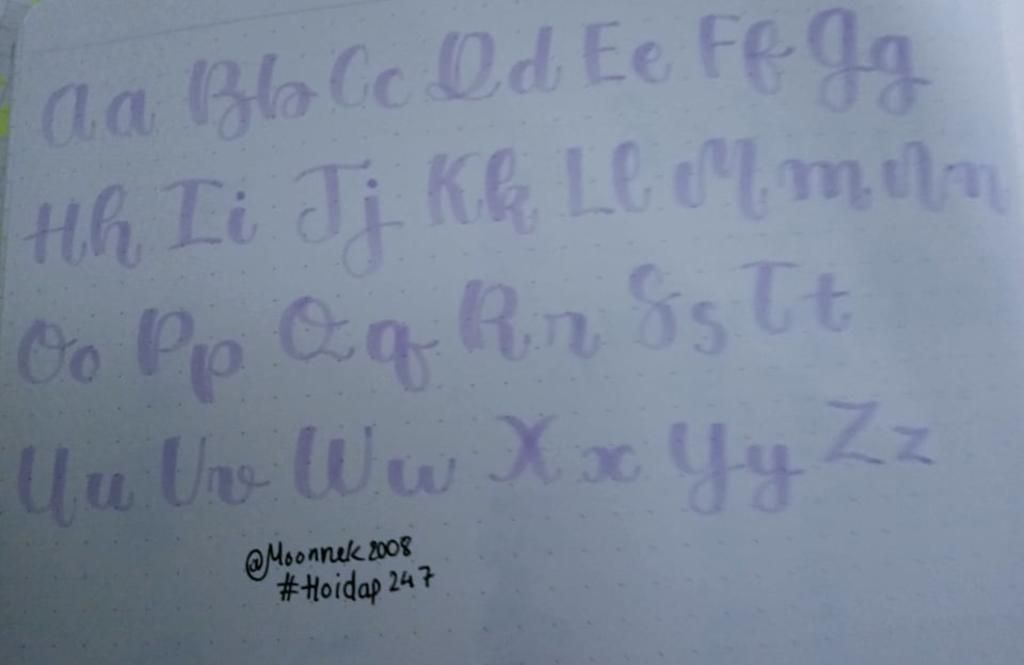 Aa Bb Cc Dd Ee Ff Gg
Hh Ii Jj Kk Ll Mm Nn
Oo Pp Qq Rr Ss Tt
Uu Vv Ww Xx Yy Zz
@Moonnek2008
#Hoidap247